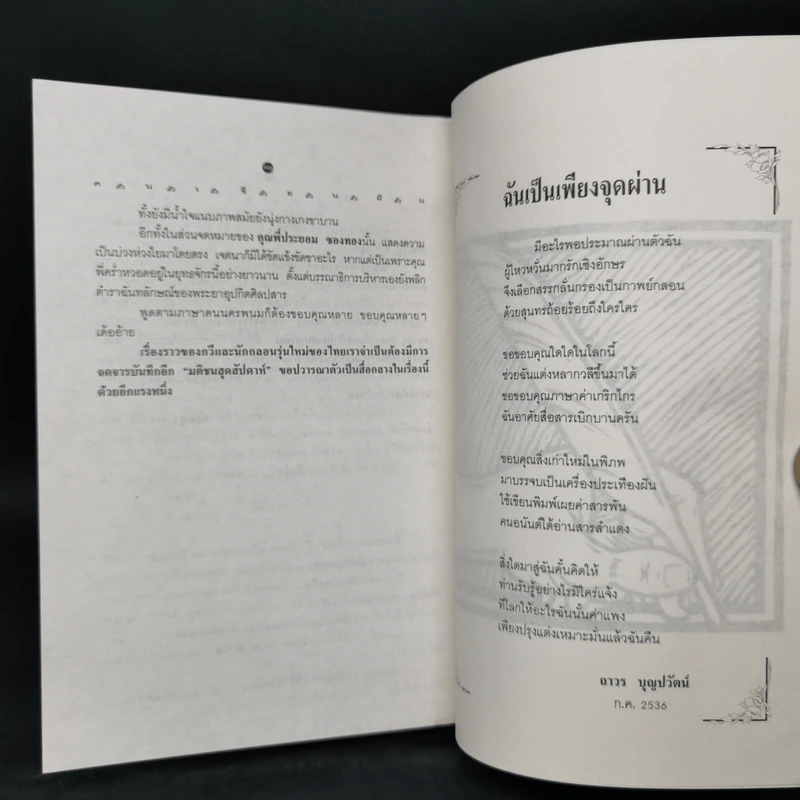 ค น เ ขี ย น
ทั้งยังมีน้ำใจแนบภาพสมัยยังนุ่งกางเกงขาบาน
อีกทั้งในส่วนจดหมายของ คุณพี่ประยอม ซองทองนั้น แสดงความ
เป็นบ่วงห่วงใยมาโดยตรง เจตนาก็มิได้ขัดแข้งขัดขาอะไร หากแต่เป็นเพราะคุณ
พี่คร่ำหวอดอยู่ในยุทธจักรนี้อย่างยาวนาน ตั้งแต่บรรณาธิการบริหารเองยังพลิก
ตำราฉันทลักษณ์ของพระยาอุปกิตศิลปสาร
พูดตามภาษาคนนครพนมก็ต้องขอบคุณหลาย ขอบคุณหลายๆ
เด้ออ้าย
เรื่องราวของกวีและนักกลอนรุ่นใหม่ของไทยเราจำเป็นต้องมีการ
จดจารบันทึกอีก "มติชนสุดสัปดาห์" ขอปวารณาตัวเป็นสื่อกลางในเรื่องนี้
ด้วยอีกแรงหนึ่ง
ฉันเป็นเพียงจุดผ่าน
มีอะไรพอประมาณผ่านตัวฉัน
ผู้ไหวหวั่นมากรักเชิงอักษร
จึงเลือกสรรกลั่นกรองเป็นกาพย์กลอน
ด้วยสุนทรถ้อยร้อยถึงใครใคร
ขอขอบคุณใดใดในโลกนี้
ช่วยฉันแต่งหลากวลีขึ้นมาได้
ขอขอบคุณภาษาค่าเกริกไกร
ฉันอาศัยสื่อสารเบิกบานครัน
ขอบคุณสิ่งเก่าใหม่ในพิภพ
มาบรรจบเป็นเครื่องประเทืองฝัน
ใช้เขียนพิมพ์เผยค่าสารพัน
คนอนันต์ได้อ่านสารสำแดง
สิ่งใดมาสู่ฉันคั้นคิดให้
ท่านรับรู้อย่างไรมิใคร่แจ้ง
ที่โลกให้อะไรฉันนั้นค่าแพง
เพียงปรุงแต่งเหมาะมั่นแล้วฉันคืน
ถาวร บุญปวัตน์
ก.ค. 2536